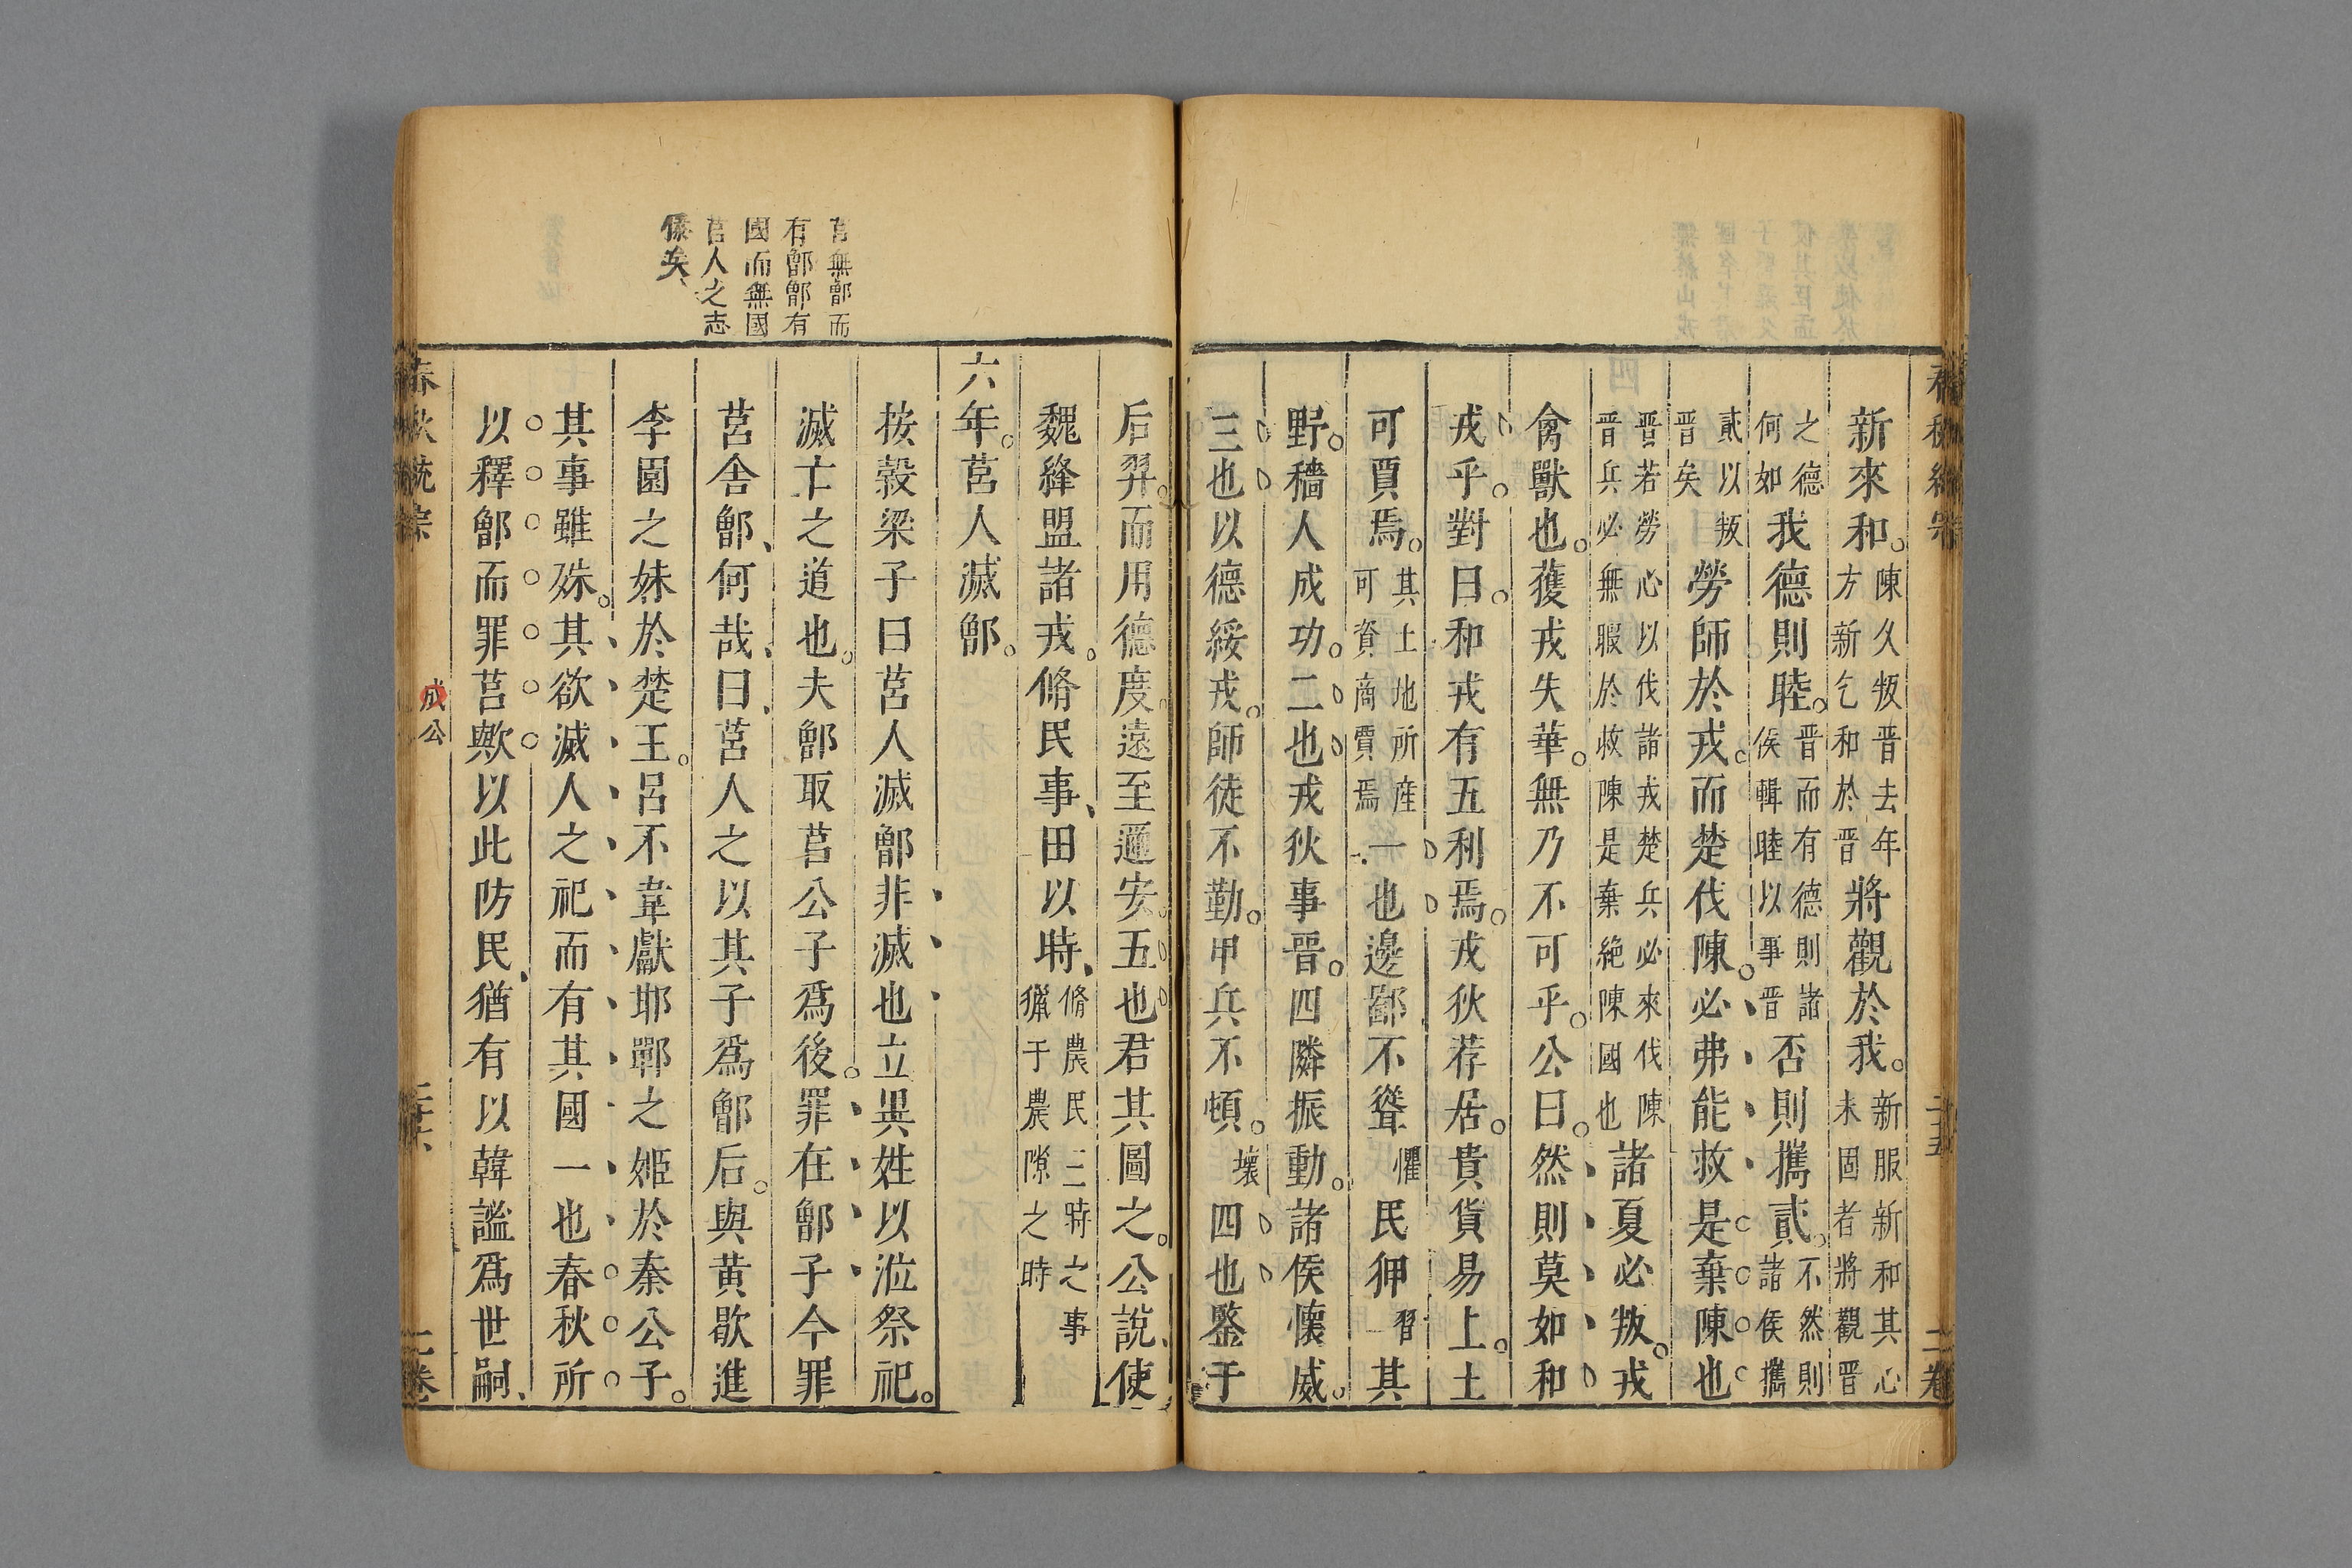 新來和。陳久叛晉去年方新乞和於晉將觀於我。新服新和其心未固者將觀晉
之德何如我德則睦。晉而有德則諸侯輯睦以事晉否則攜貳。不然則諸侯攜
貳以叛晉矣勞師於戎。而楚伐陳。必弗能救是棄陳也
晉若勞心以伐諸戎楚兵必來伐陳晉兵必無暇於救陳是棄絶陳國也諸夏必叛。戎
禽獸也。獲戎失華。無乃不可乎。公曰。然則莫如和
戎乎。對曰。和戎有五利焉。戎狄荐居。貴貨易土。土
可賈焉。其土地所産可資商賈焉一也邊鄙不聳懼民狎習其
野。穡人成功。二也戎狄事晉。四隣振動。諸侯懷威。
三也以德綏戎。師徒不勤。甲兵不頓。壞四也鑒于
后羿。而用德度。遠至邇安。五也君其圖之。公說、使
魏絳盟諸戎。脩民事、田以時、脩農民三時之事獵于農隙之時
六年。莒人滅鄫。
按穀梁子曰莒人滅鄫非滅也立異姓以涖祭祀。
滅亡之道也。夫鄫取莒公子爲後。罪在鄫子今罪
莒舍鄫、何哉、曰、莒人之以其子爲鄫后。與黄歇進
李園之妹於楚王。呂不韋獻邯鄲之姬於秦公子。
其事雖殊。其欲滅人之祀而有其國一也春秋所
以釋鄫而罪莒歟以此防民、猶有以韓謐爲世嗣、
莒無鄫而
有鄫鄫有
國而無國
莒人之志
憯矣、
春秋統宗
成公
二十六
二卷
二十五
二卷